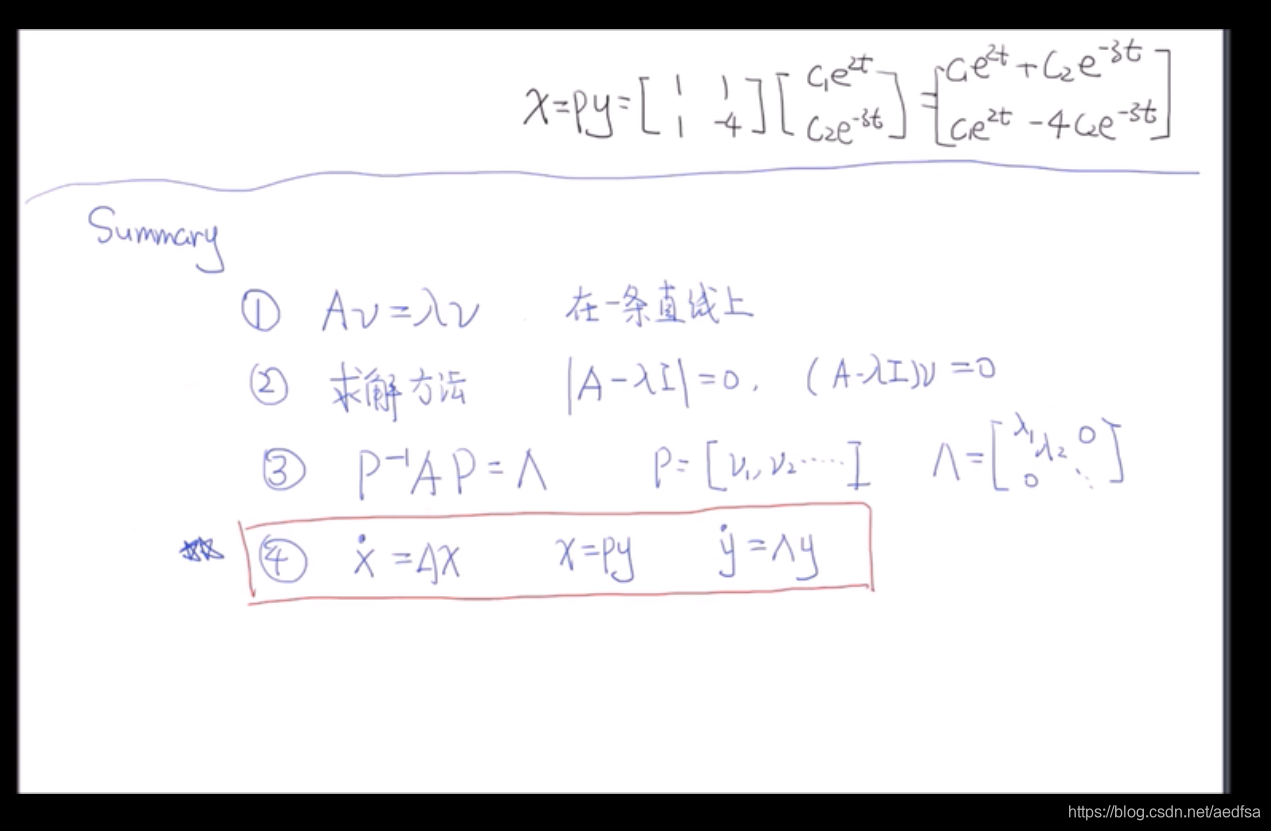 x=py=[1 1 1 -4][c₁e^{2t} c₂e^{-3t}]=[c₁e^{2t}+c₂e^{-3t} c₁e^{2t}-4c₂e^{-3t}]
Summary
① Aν=λν 在一条直线上
② 求解方法 |A-λI|=0, (A-λI)ν=0
③ P⁻¹AP=Λ P=[ν₁,ν₂……] Λ=[λ₁ λ₂ 0 0 ⋱]
④ ẋ=AX x=py ẏ=Λy
https://blog.csdn.net/aedfsa